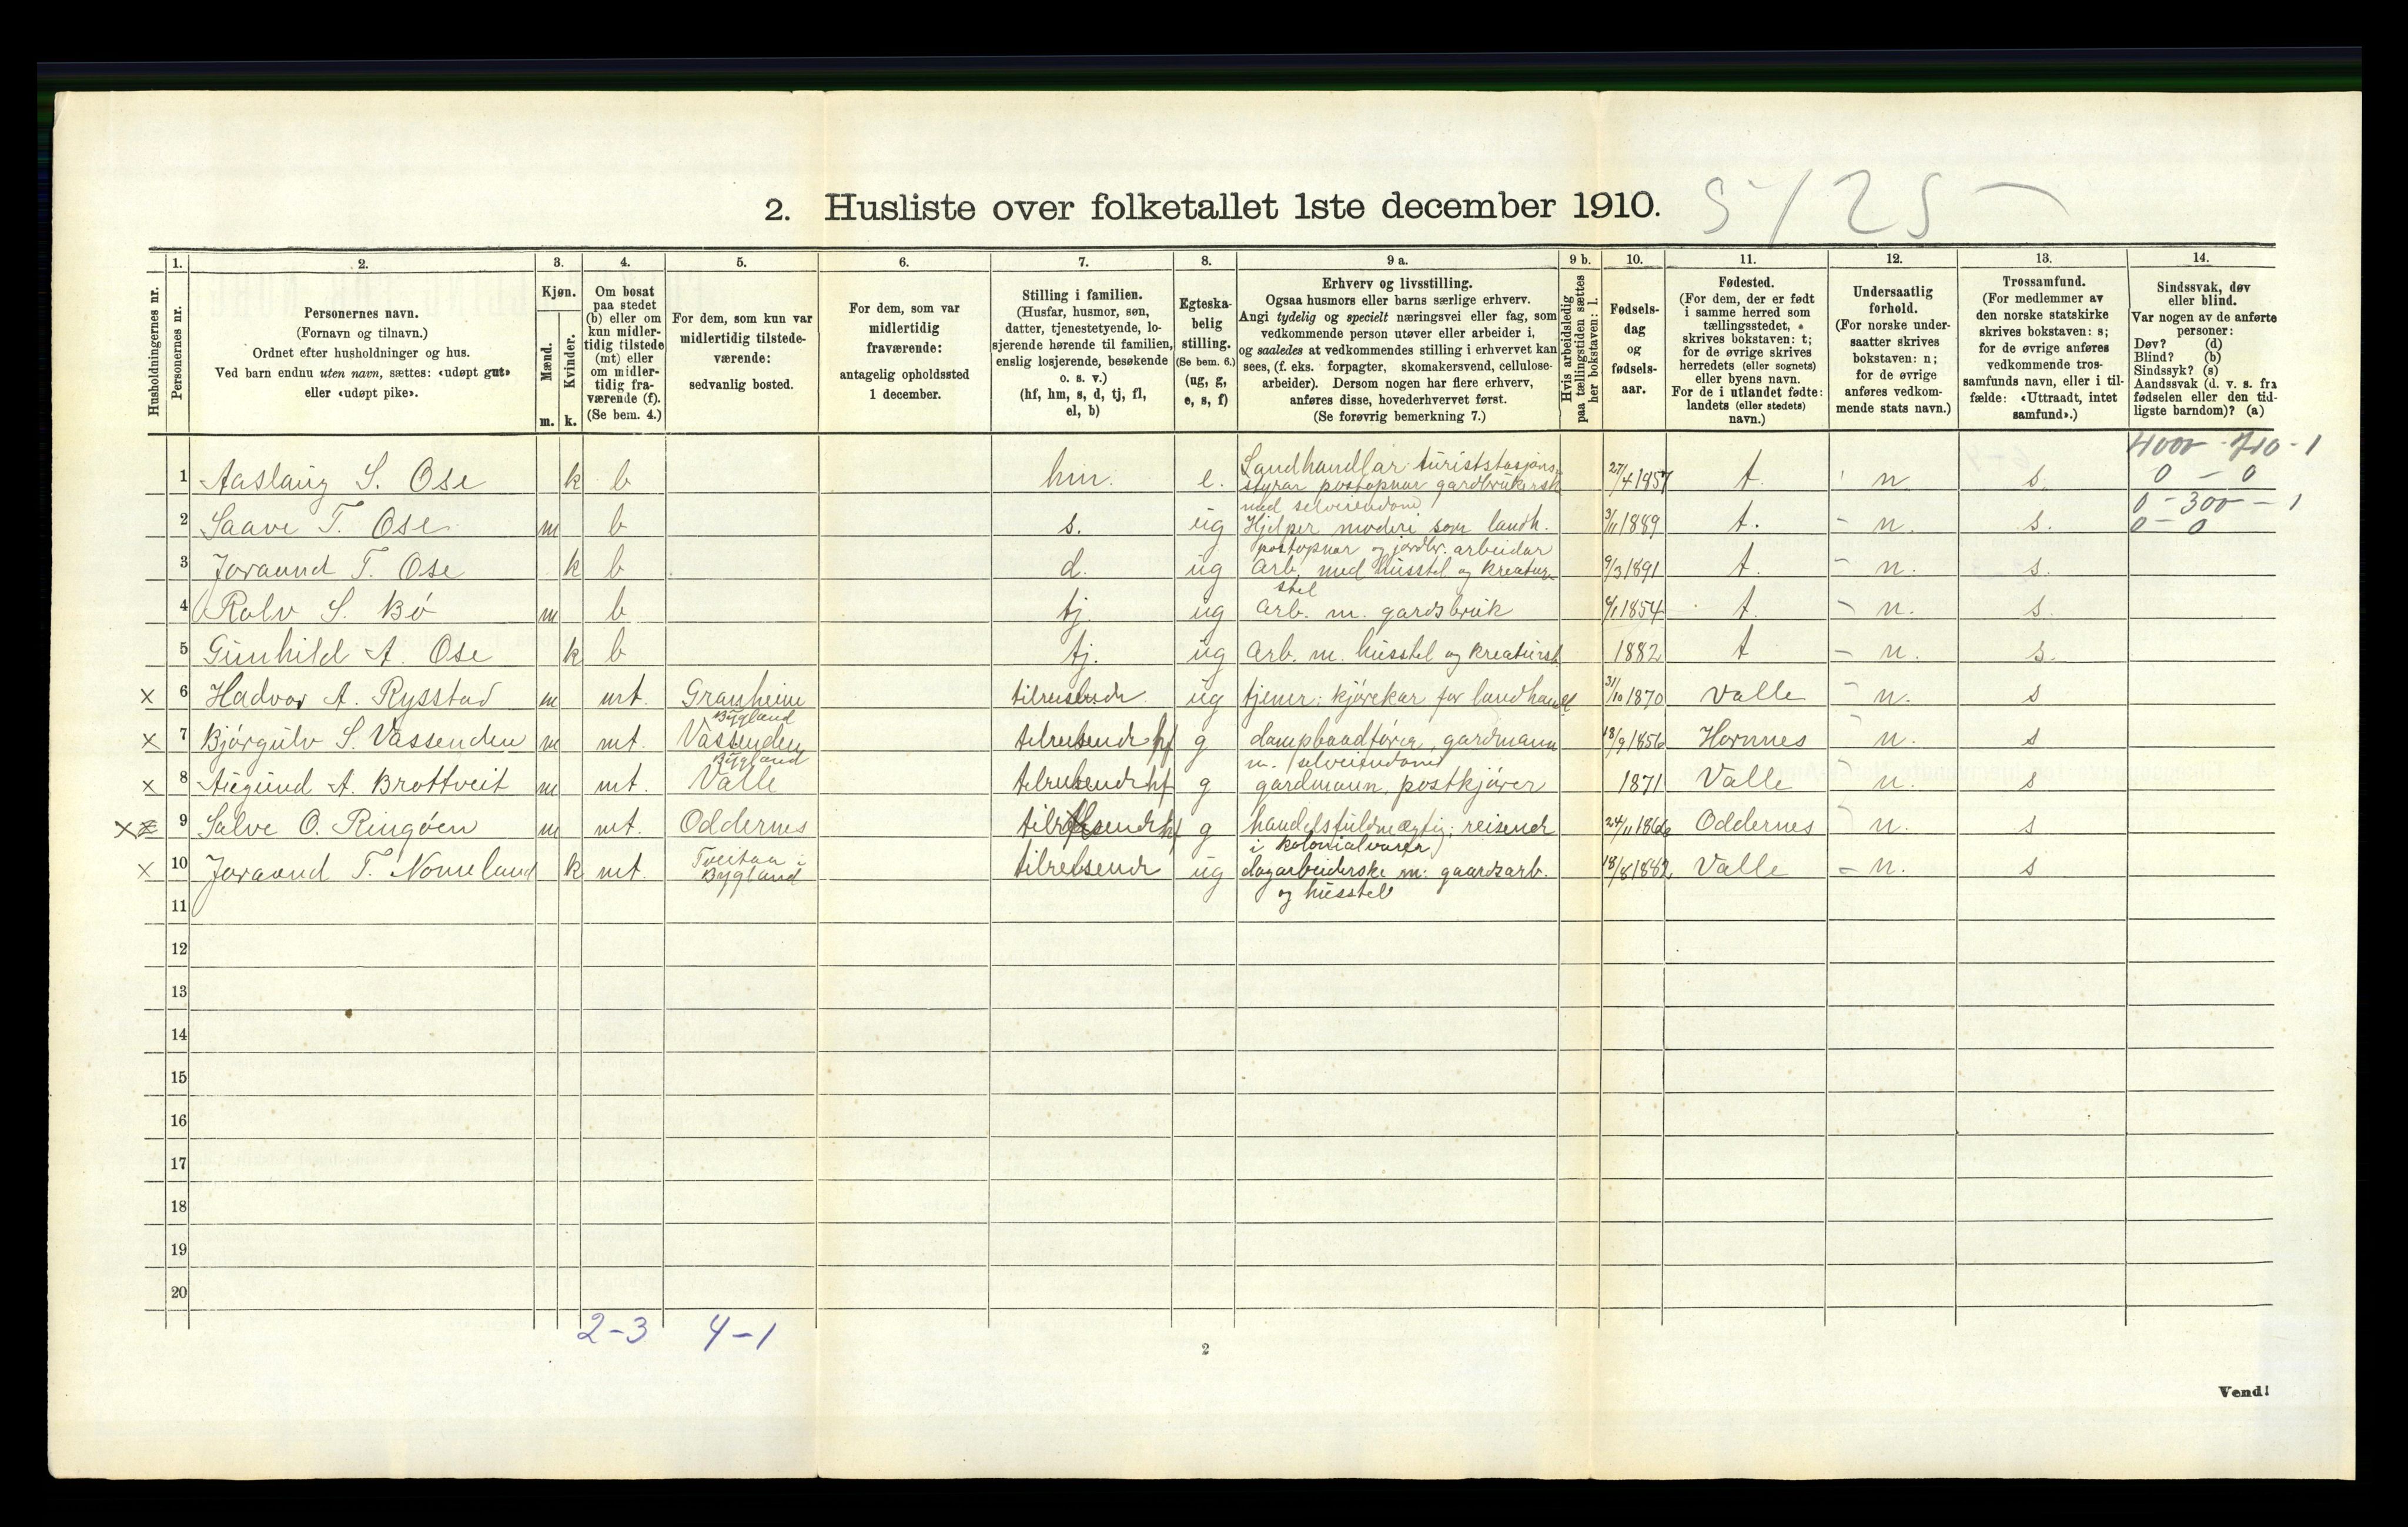 2. Husliste over folketallet 1ste december 1910. 5/25
Husholdningernes nr.
1. Personernes nr.
2. Personernes navn.
(Fornavn og tilnavn.)
Ordnet efter husholdninger og hus.
Ved barn endnu uten navn, sættes: «udøpt gut»
eller «udøpt pike».
3. Kjøn.
Mænd. m.
Kvinder. k.
4. Om bosat
paa stedet
(b) eller om
kun midler-
tidig tilstede
(mt) eller
om midler-
tidig fra-
værende (f).
(Se bem. 4.)
5. For dem, som kun var
midlertidig tilstede-
værende:
sedvanlig bosted.
6. For dem, som var
midlertidig
fraværende:
antagelig opholdssted
1 december.
7. Stilling i familien.
(Husfar, husmor, søn,
datter, tjenestetyende, lo-
sjerende hørende til familien,
enslig losjerende, besøkende
o. s. v.)
(hf, hm, s, d, tj, fl,
el, b)
8. Egteska-
belig
stilling.
(Se bem. 6.)
(ug, g,
e, s, f)
9 a. Erhverv og livsstilling.
Ogsaa husmors eller barns særlige erhverv.
Angi tydelig og specielt næringsvei eller fag, som
vedkommende person utøver eller arbeider i,
og saaledes at vedkommendes stilling i erhvervet kan
sees, (f. eks. forpagter, skomakersvend, cellulose-
arbeider). Dersom nogen har flere erhverv,
anføres disse, hovederhvervet først.
(Se forøvrig bemerkning 7.)
9 b. Hvis arbeidsledig
paa tællingstiden sættes
her bokstaven: l.
10. Fødsels-
dag
og
fødsels-
aar.
11. Fødested.
(For dem, der er født
i samme herred som
tællingsstedet,
skrives bokstaven: t;
for de øvrige skrives
herredets (eller sognets)
eller byens navn.
For de i utlandet fødte:
landets (eller stedets)
navn.)
12. Undersaatlig
forhold.
(For norske under-
saatter skrives
bokstaven: n;
for de øvrige
anføres vedkom-
mende stats navn.)
13. Trossamfund.
(For medlemmer av
den norske statskirke
skrives bokstaven: s;
for de øvrige anføres
vedkommende tros-
samfunds navn, eller i til-
fælde: «Uttraadt, intet
samfund».)
14. Sindssvak, døv
eller blind.
Var nogen av de anførte
personer:
Døv? (d)
Blind? (b)
Sindssyk? (s)
Aandssvak (d. v. s. fra
fødselen eller den tid-
ligste barndom)? (a)
4000 - 710 - 1
1 Aaslaug S. Ose k b hm. e. Landhandlar turiststasjons-
styrar postopnar gardbrukersk 27/4 1857 t. n s. 0 - 0
med selveiendom 0 - 300 - 1
2 Saave T. Ose m b s. ug Hjelper moderi som landh. 3/11 1889 t. - n. s. 0 - 0
postopnar og jordbr. arbeidar
3 Joraand T. Ose k b d. ug Arb. med husstel og kreatur- 9/3 1891 t. - n. s.
stel
4 Rolv S. Bö m b tj. ug Arb. m. gardsbruk 1854 t. - n. s.
5 Gunhild A. Ose k b tj. ug Arb. m. husstel og kreaturst. 1882 t - n. s.
x 6 Hadvor A. Rysstad m mt. Granheim tilreisende ug tjener: kjörekar for landhandl 31/10 1870 Valle - n. s
Bygland
x 7 Bjørgulv S. Vassenden m mt. Vassenden tilreisende hf g dampbaadförer, gardmann 18/9 1856 Hornnes - n. s
Bygland m. selveiendom
x 8 Augund A. Brottveit m mt. Valle tilreisende hf g gardmann, postkjörer 1871 Valle - n. s
xx 9 Salve O. Ringöen m mt. Oddernes tilreisende hf g handelsfuldmægtig; reisende 24/11 1866 Oddernes - n. s
i kolonialvarer
x 10 Joraand T. Nomeland k mt. Tveitaa i tilreisende ug dagarbeiderske m. gaardsarb. 18/8 1882 Valle - n. s
Bygland og husstel
11
12
13
14
15
16
17
18
19
20
2-3 4-1
2
Vend!